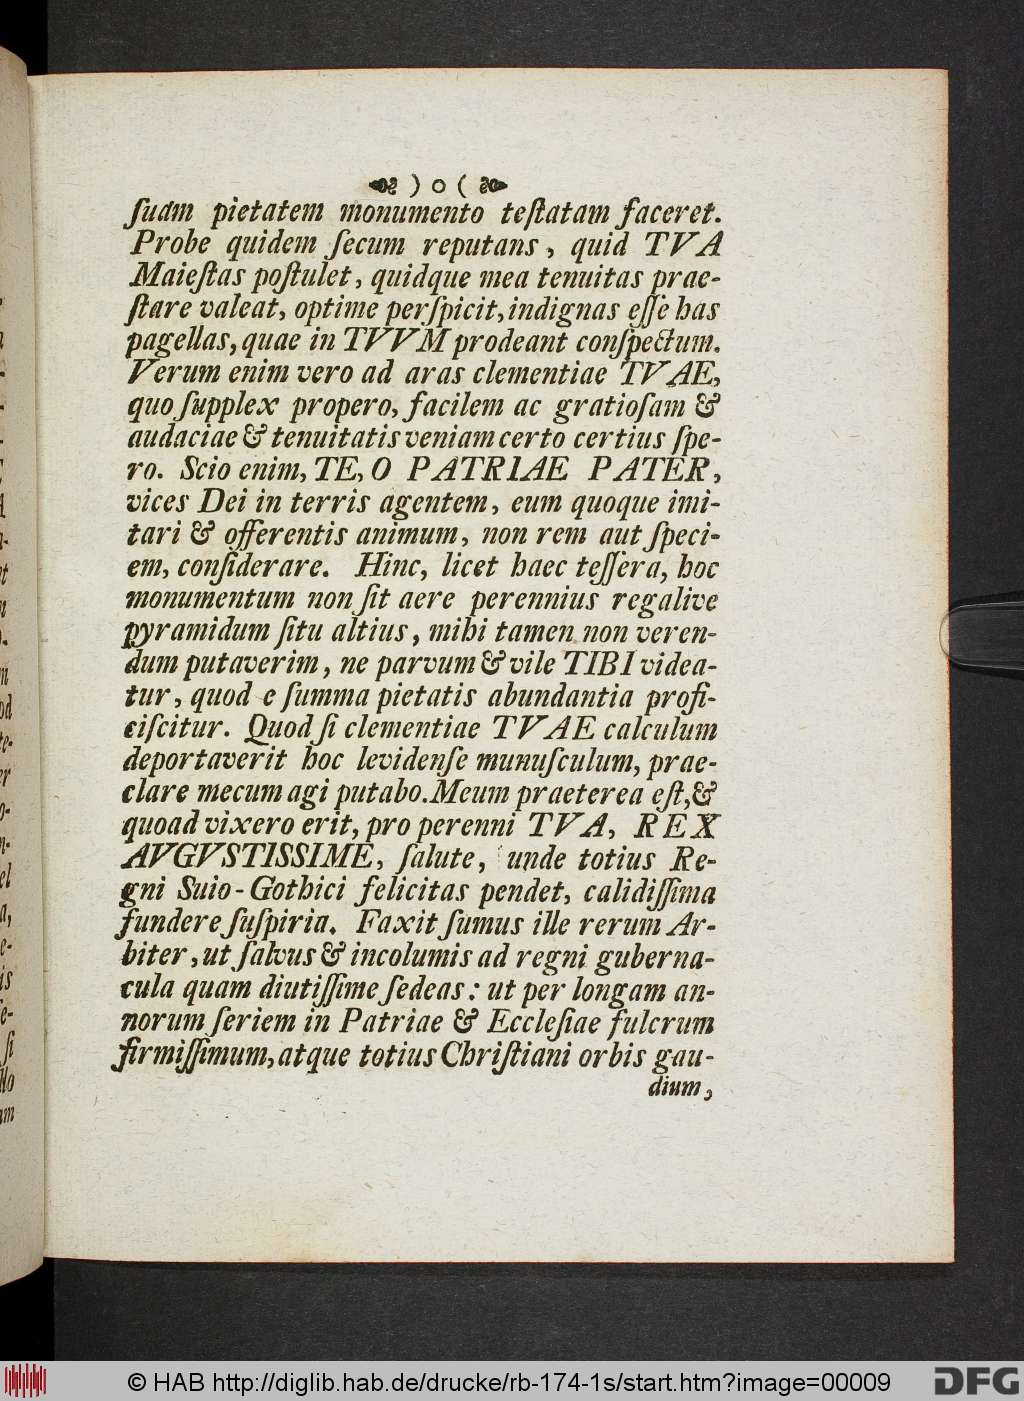 ) o (
ſuam pietatem monumento teſtatam faceret.
Probe quidem ſecum reputans, quid TVA
Maieſtas poſtulet, quidque mea tenuitas prae-
ſtare valeat, optime perſpicit, indignas eſſe has
pagellas, quae in TVVM prodeant conſpectum.
Verum enim vero ad aras clementiae TVAE,
quo ſupplex propero, facilem ac gratioſam &
audaciae & tenuitatis veniam certo certius ſpe-
ro. Scio enim, TE, O PATRIAE PATER,
vices Dei in terris agentem, eum quoque imi-
tari & offerentis animum, non rem aut ſpeci-
em, conſiderare. Hinc, licet haec teſſera, hoc
monumentum non ſit aere perennius regalive
pyramidum ſitu altius, mihi tamen non veren-
dum putaverim, ne parvum & vile TIBI videa-
tur, quod e ſumma pietatis abundantia profi-
ciſcitur. Quod ſi clementiae TVAE calculum
deportaverit hoc levidenſe munuſculum, prae-
clare mecum agi putabo. Meum praeterea eſt, &
quoad vixero erit, pro perenni TVA, REX
AVGVSTISSIME, ſalute, unde totius Re-
gni Suio-Gothici felicitas pendet, calidiſſima
fundere ſuſpiria. Faxit ſumus ille rerum Ar-
biter, ut ſalvus & incolumis ad regni guberna-
cula quam diutiſſime ſedeas: ut per longam an-
norum ſeriem in Patriae & Eccleſiae fulcrum
firmiſſimum, atque totius Chriſtiani orbis gau-
dium,
© HAB http://diglib.hab.de/drucke/rb-174-1s/start.htm?image=00009
DFG